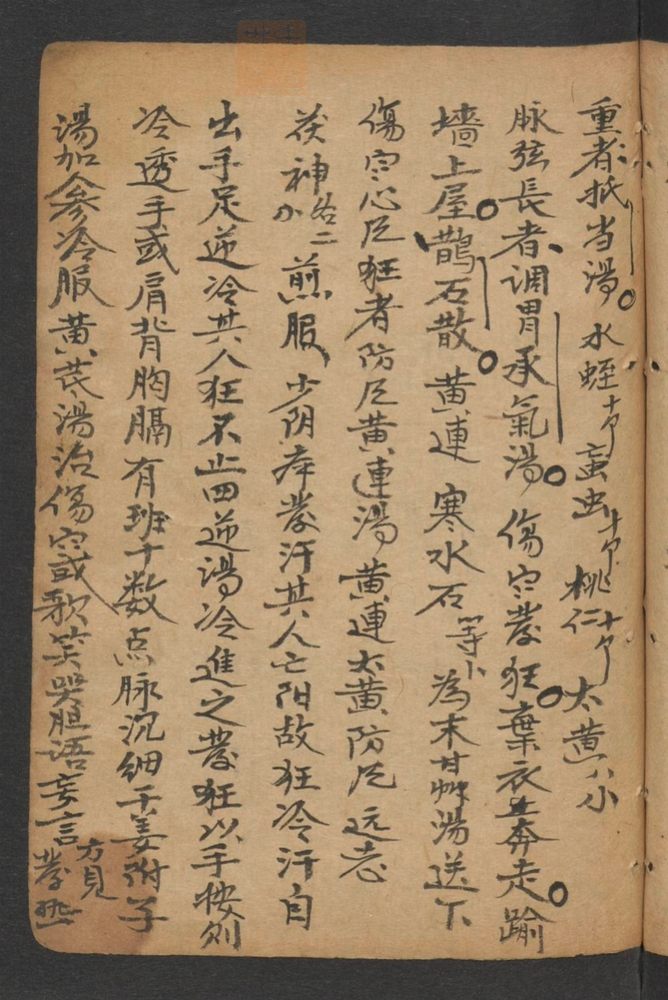 重者抵当湯 水蛭十个 䖟虫十个 桃仁十个 大黄八小
脉弦長者调胃承氣湯 傷宀發狂棄衣奔走踰
墻上屋鵲石散 黄連 寒水石 等卜 為末甘艸湯送下
傷宀心尼狂者防尼黄連湯黄連大黄防尼远志
茯神各二 煎服 少阴病發汗其人亡阳故狂冷汗自
出手足逆冷其人狂不止四逆湯冷進之發狂以手按则
冷透手或肩背胸膈有班十数点脉沉细干姜附子
湯加人參冷服 黄芪湯治傷宀或歌笑哭胆语妄言 方見發